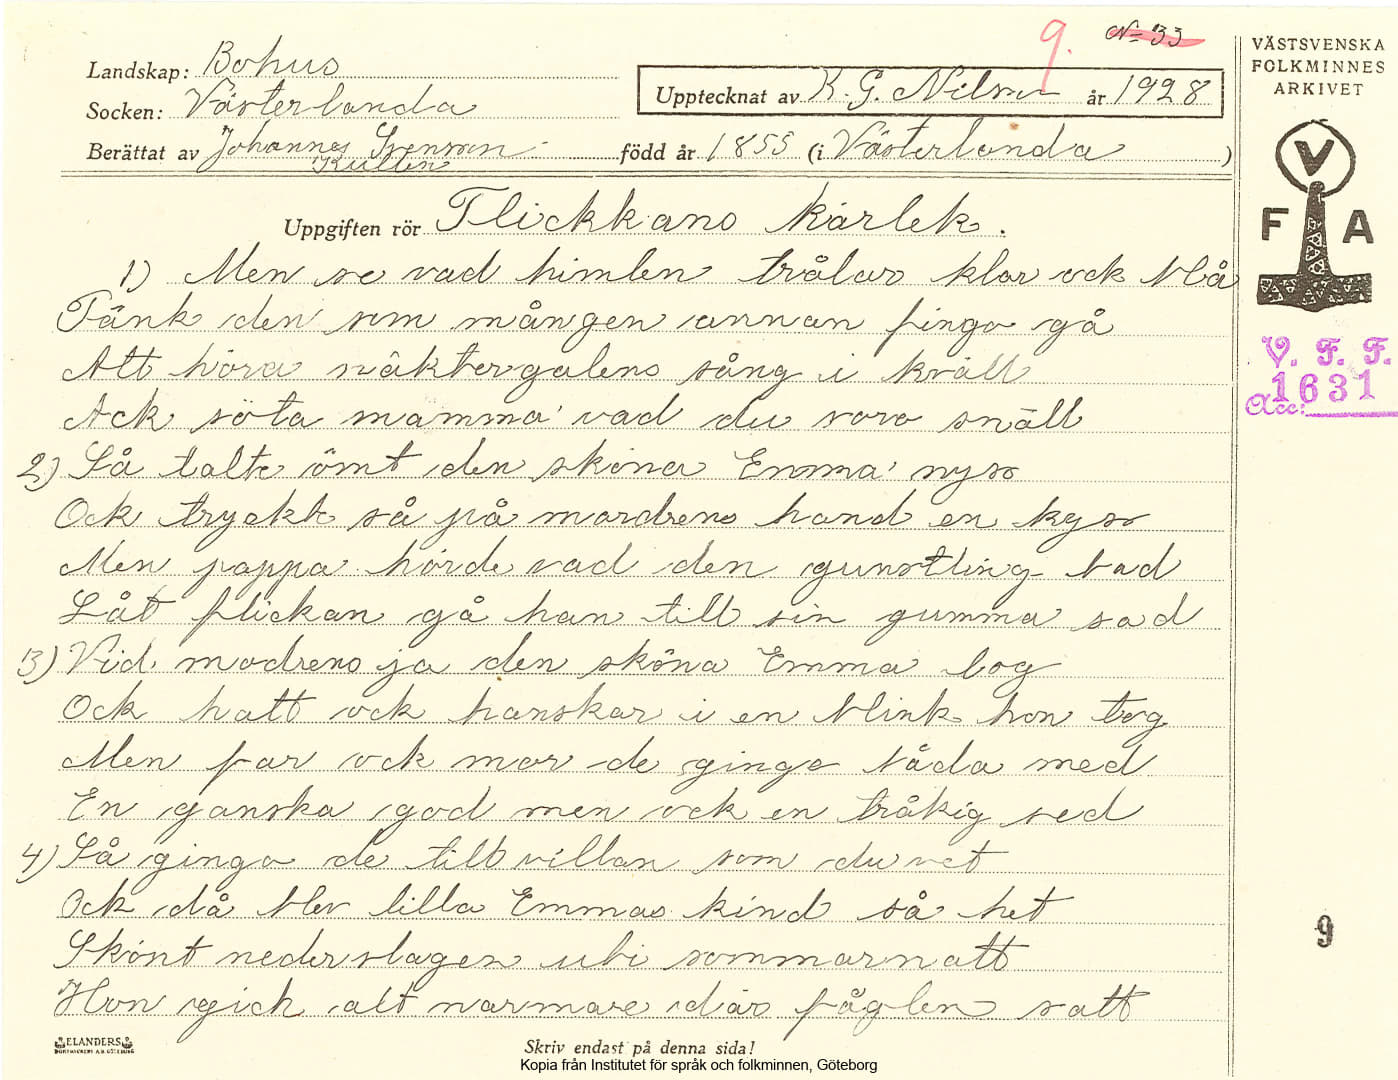 9. No 33
Landskap: Bohus
Socken: Västerlanda
Berättat av Johannes Svensson
Kullen
Upptecknat av K. G. Nilsson år 1928
född år 1855 (i Västerlanda )
VÄSTSVENSKA
FOLKMINNES
ARKIVET
V
F A
V. F. F.
Acc: 1631
Uppgiften rör Flickkans kärlek.
1) Men se vad himlen strålar klar ock blå
Tänk den som mången annan finge gå
Att höra näktergalens sång i kväll
Ack söta mamma vad du voro snäll
2) Så talte ömt den sköna Emma nyss
Ock tryckte så på mordrens hand en kyss
Men pappa hörde vad den gunstling bad
Låt flickan gå han till sin gumma sad
3) Vid modrens ja den sköna Emma log
Ock hatt ock hanskar i en blink hon tog
Men far ock mor de ginge båda med
En ganska god men ock en tråkig sed
4) Så ginge de till villan som du vet
Ock då blev lilla Emmas kind så het
Skönt nederslagen uti sommarnatt
Hon gick alt narmare där fåglen satt
9
ELANDERS
BOKTRYCKERI A.B. GÖTEBORG
Skriv endast på denna sida!
Kopia från Institutet för språk och folkminnen, Göteborg